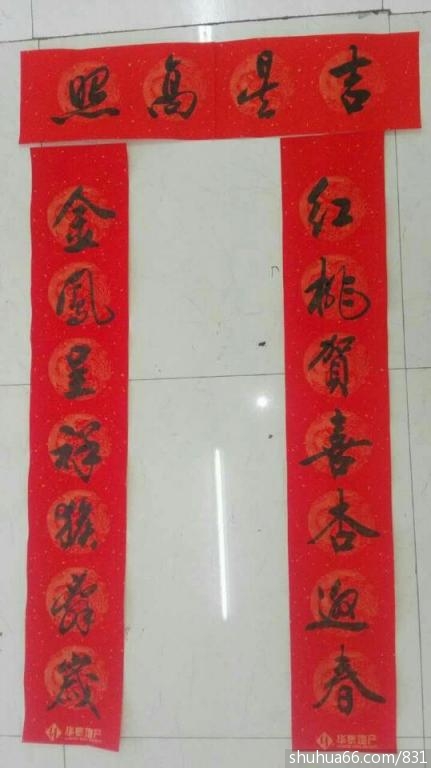 吉星高照
红桃賀喜杏迎春
金鳳呈祥猴舞歲
地产
地产
shuhua66.com/831